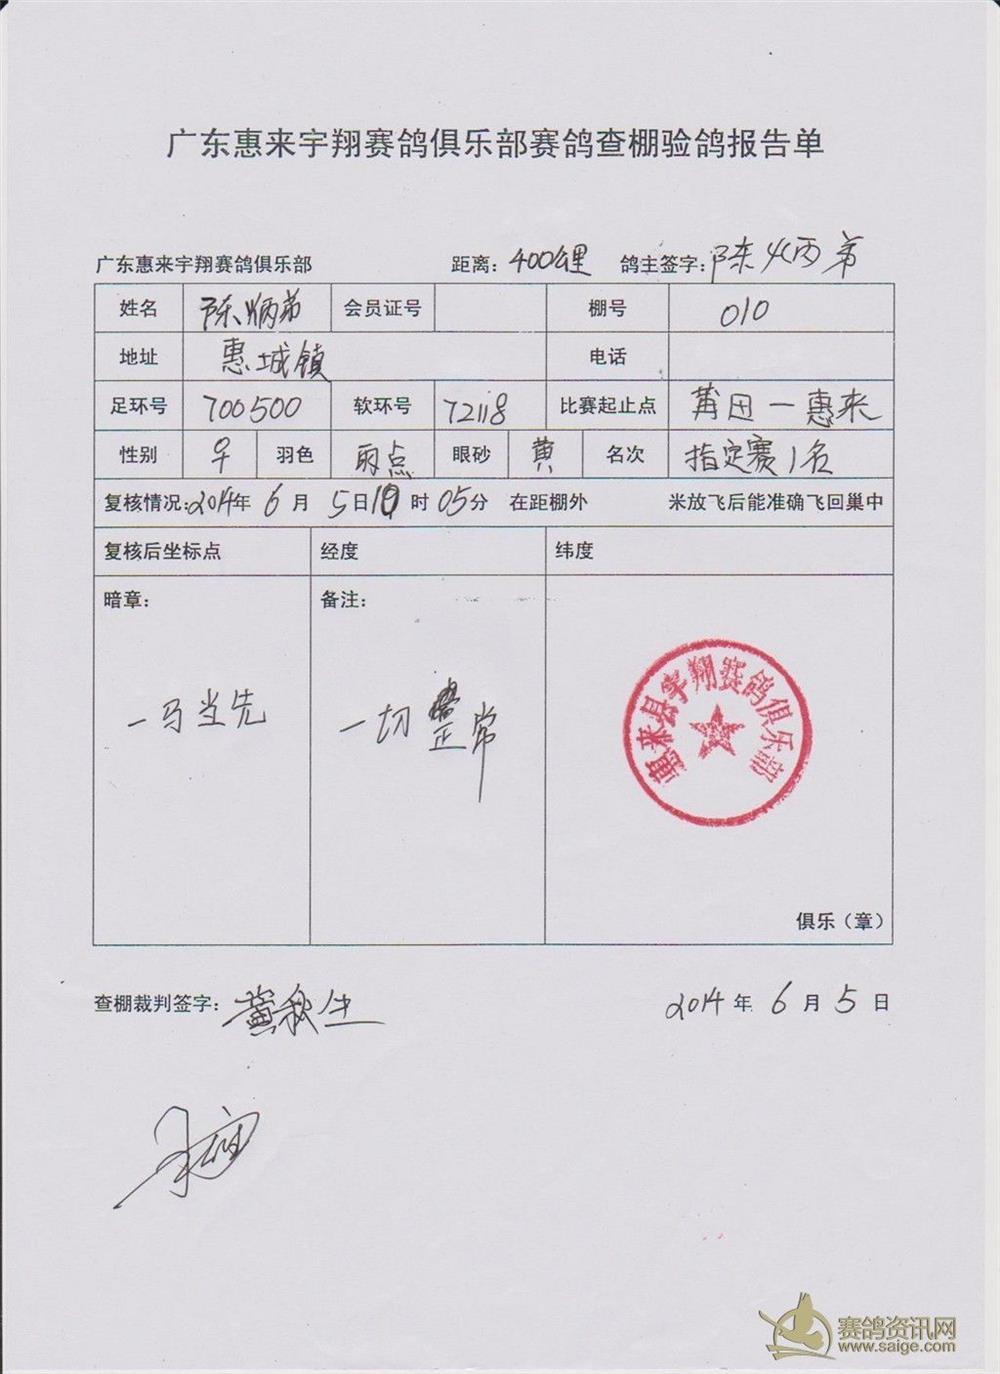 广东惠来宇翔赛鸽俱乐部赛鸽查棚验鸽报告单
广东惠来宇翔赛鸽俱乐部 距离：400公里 鸽主签字：陈炳弟
姓名 陈炳弟 会员证号 棚号 010
地址 惠城镇 电话
足环号 700500 软环号 72118 比赛起止点 莆田一惠来
性别 羽色 雨点 眼砂 黄 名次 指定赛1名
复核情况：2014年 6 月 5日10 时 05分 在距棚外 米放飞后能准确飞回巢中
复核后坐标点 经度 纬度
暗章： 备注：
一马当先 一切正常
惠来县宇翔赛鸽俱乐部
俱乐（章）
查棚裁判签字：黄秋生 2014 年 6 月 5 日
赛鸽资讯网
www.saige.com